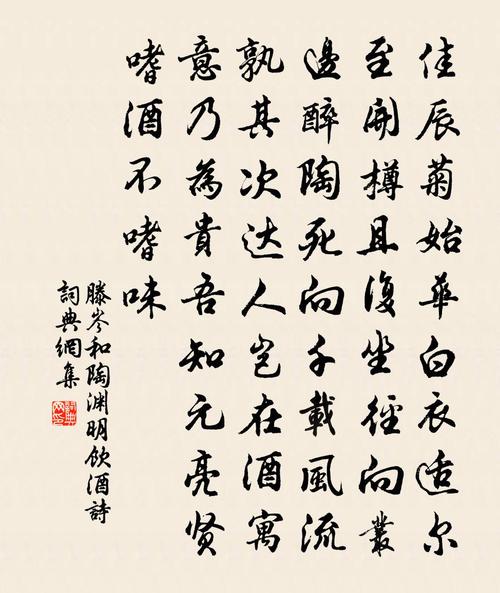 佳辰菊始華白衣适尔
至開樽且復坐徑向叢
邊醉陶死向千載風流
孰其次达人岂在酒寓
意乃為貴吾知元亮贤
嗜酒不嗜味
滕岑和陶渊明飲酒詩
詞典網集